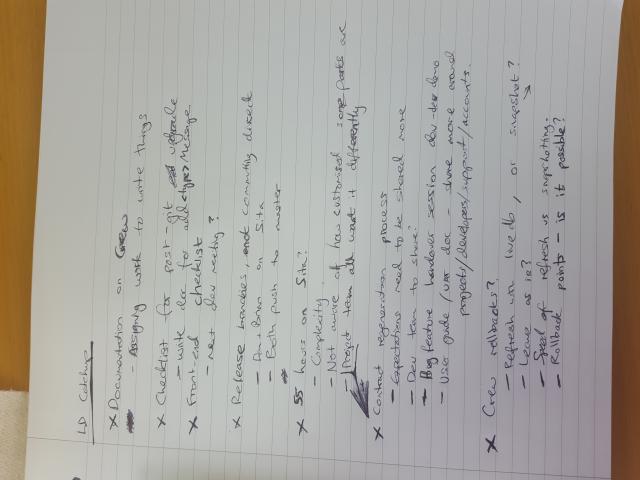 LD Catchup
x Documentation on Crew
- Assigning work to write things
x Checklist for post-git upgrade
- write doc for addtypeMessage
x Front-end checklist
- next dev meeting?
x Release branches, not committing direct
- on Sita
- Both push to master
x 55 hours on Sita?
- Complexity
- Not aware of how customised some parts are
- Project team all want it differently
x Contact regeneration process
- Expectations need to be shared more
- Dev team to share?
- Big feature handover session dev-dev demo
- User guide / doc - share more around
projects/developers/support/accounts.
x Crew rollbacks?
- Refresh with live db, or snapshot?
- Leave as is?
- Speed of refresh vs snapshotting.
- Rollback points - is it possible?